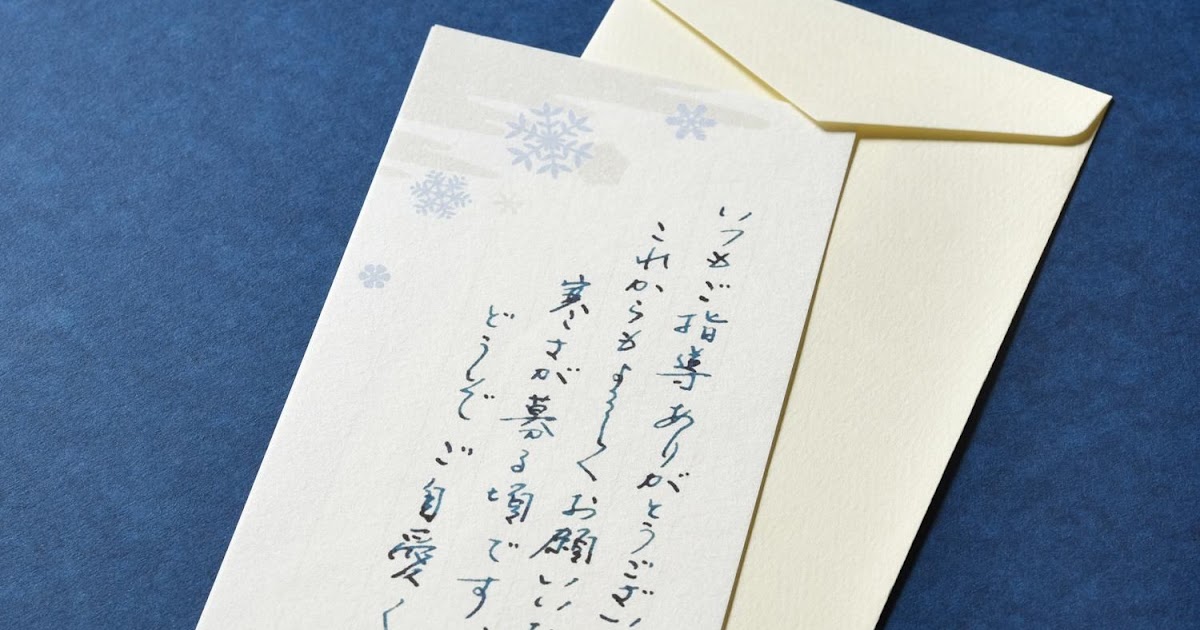 いつもご指導ありがとうござい
これからもよろしくお願いい
寒さが募る頃です
どうぞご自愛く